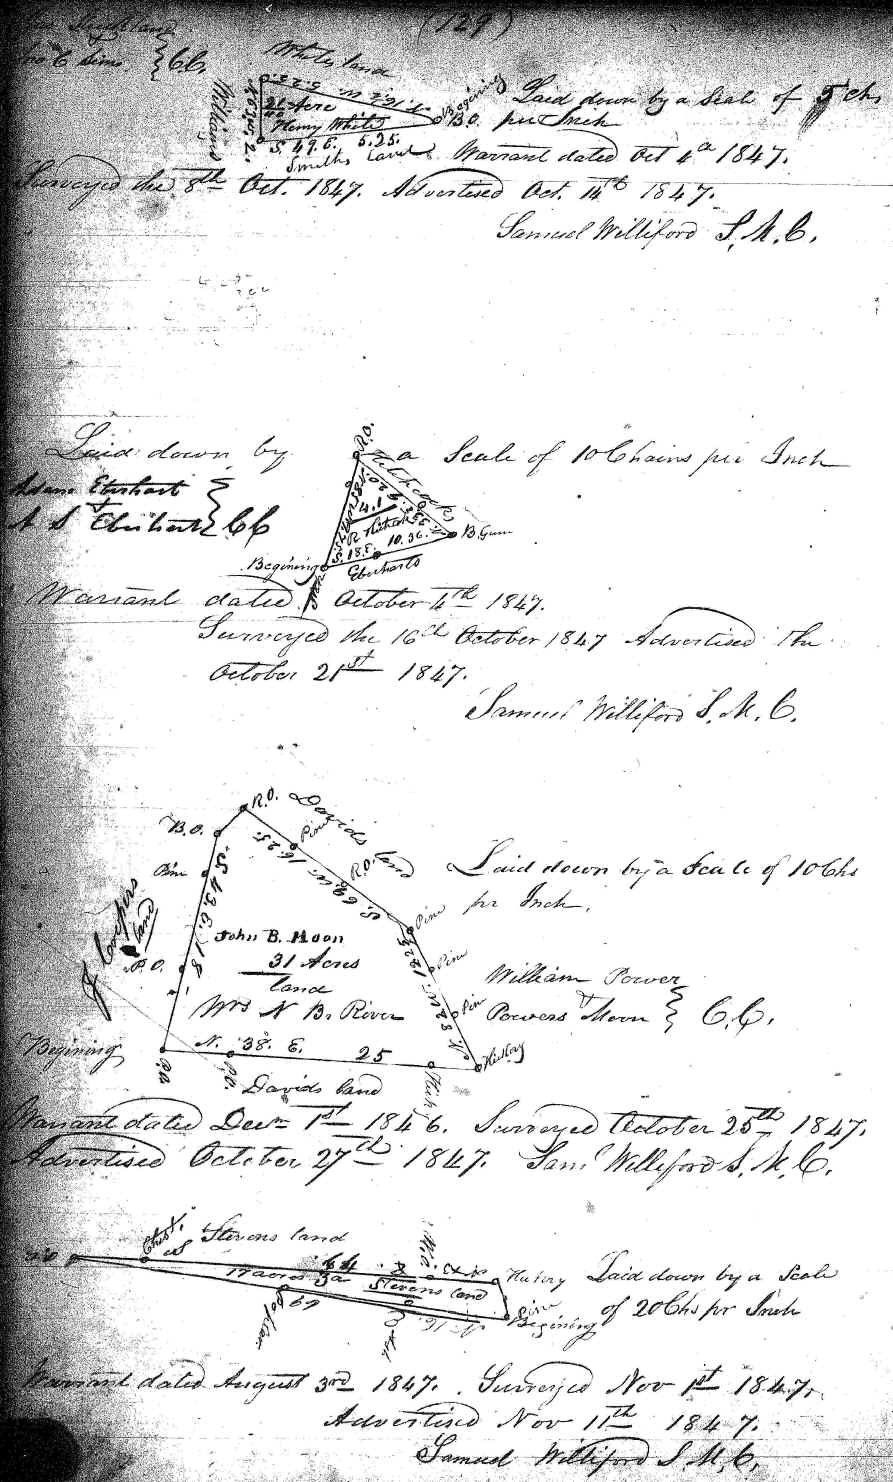 (129)
C.C.
Whites land
Williams
21 Acre
Henry White
Begining
B.O.
S. 49. E. 5.25.
Smiths Land
Laid down by a Scale of 5 chs
per Inch
Warrant dated Oct 4th 1847.
Surveyed the 8th Oct. 1847. Advertised Oct. 14th 1847.
Samuel Williford S.M.C.
Laid down by a Scale of 10 Chains per Inch
R.O.
Adam Eberhart
&
A S Eberhart } CC
B. Gum
S. 18. E. 10.36.
Begining
Eberharts
Warrant dated October 4th 1847.
Surveyed the 16th October 1847 Advertised the
October 21st 1847.
Samuel Williford S.M.C.
R.O.
Davids land
B.O.
Pine
R.O.
Pine
S. 43. E. 18
S. 69. W. 16.25.
Laid down by a Scale of 10 Chs
pr Inch.
Pine
Pine
land
P.O.
John B. Moon
31 Acres
land
Wrs N B. River
William Power
&
Powers Moon } C.C.
Begining
N. 38. E. 25
Hickory
P.O.
Davids land
Warrant dated Decr 1st 1846. Surveyed October 25th 1847.
Advertised October 27th 1847. Saml Williford S.M.C.
Chest.
Stevens land
64
Hickory
Stevens land
Poplar
69
Pine
Begining
Laid down by a Scale
of 20 Chs pr Inch
Warrant dated August 3rd 1847. Surveyed Nov 1st 1847.
Advertised Nov 11th 1847.
Samuel Williford S.M.C.